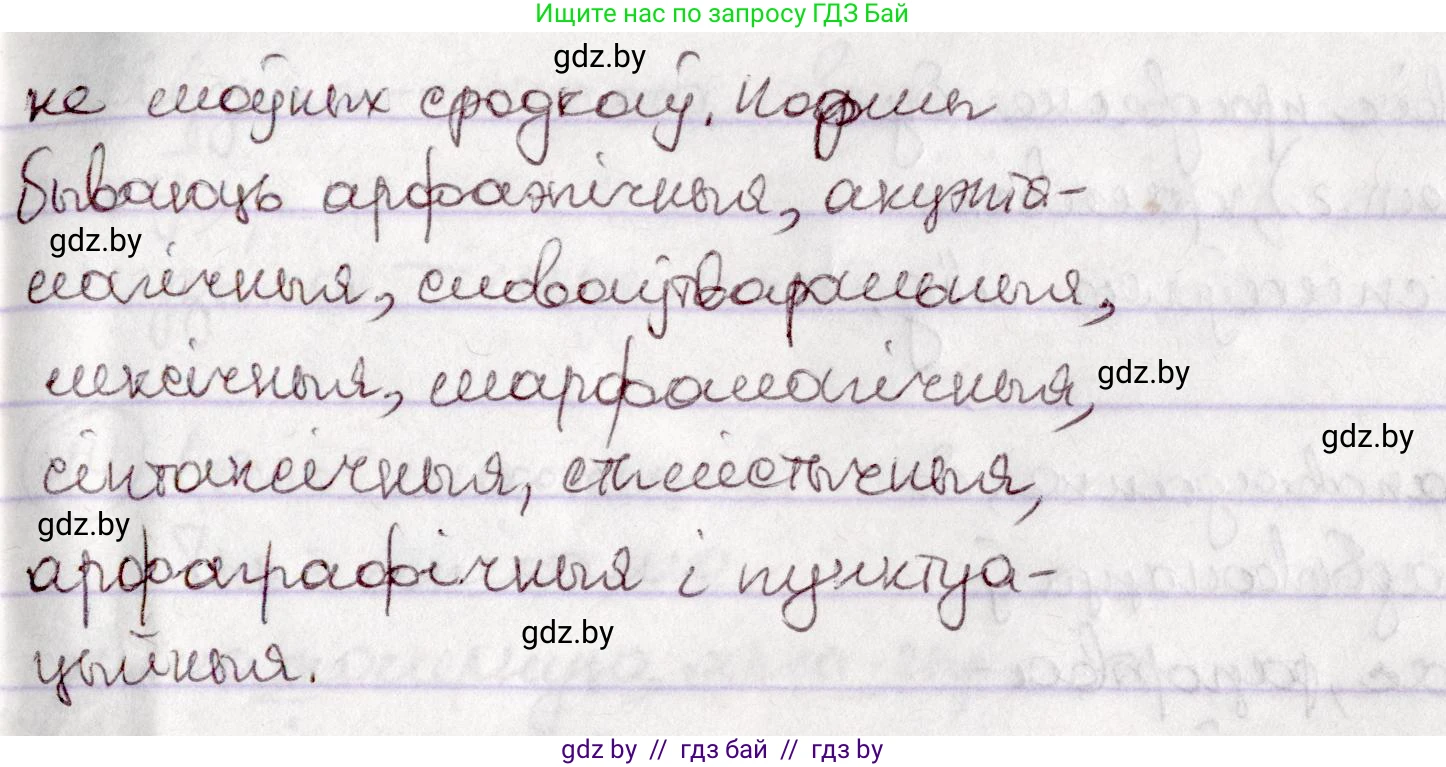 Ищите нас по запросу ГДЗ Бай
gdz.by
не моўных сродкаў. Нормы
бываюць арфаэпічныя, акцэнта-
gdz.by
лагічныя, словаўтваральныя,
лексічныя, марфалагічныя,
gdz.by
gdz.by
сінтаксічныя, стылістычныя,
gdz.by
арфаграфічныя і пунктуа-
gdz.by
цыйныя.
gdz by // гдз бай // гдз by